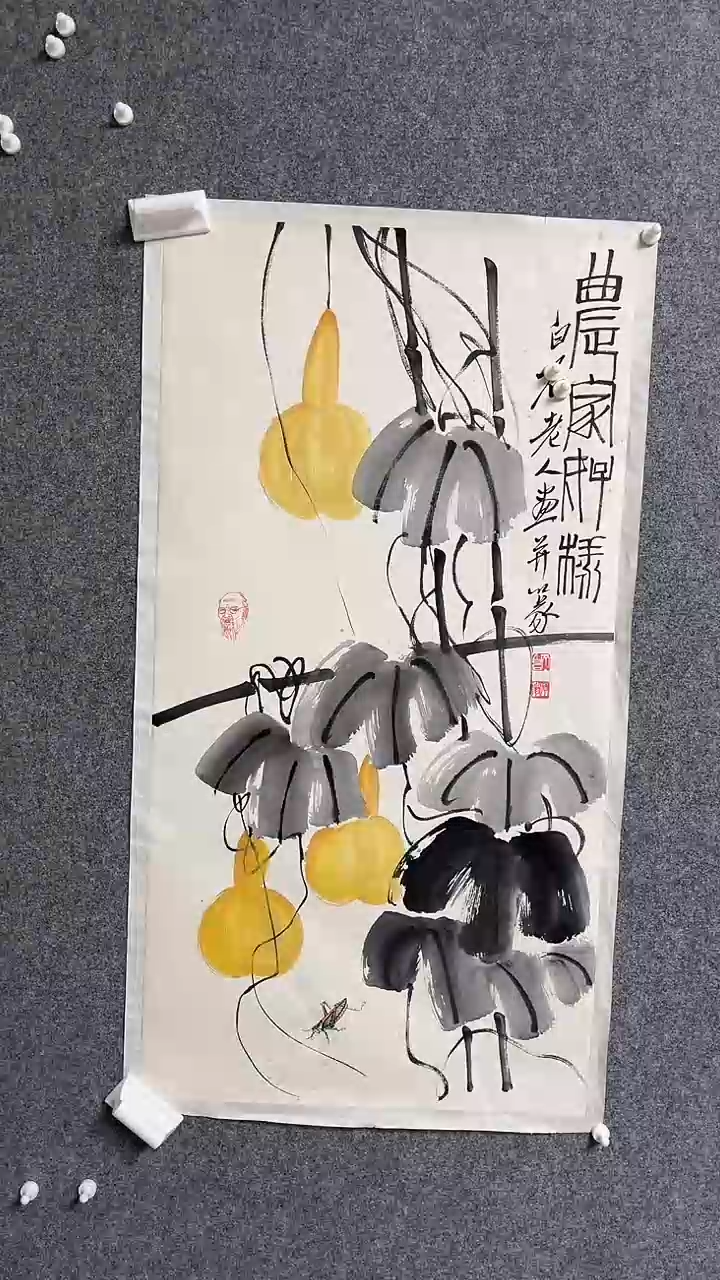 農家樣
白石老人畫并篆